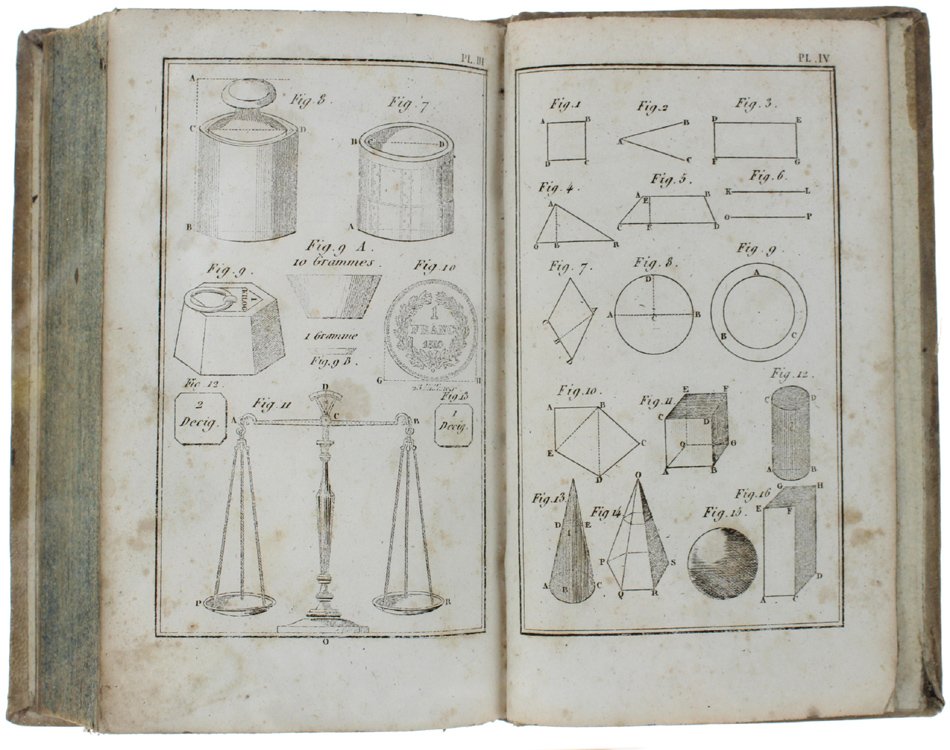 PL. III
A
Fig. 8.
Fig. 7.
C
D
B
C
D
B
A
Fig. 9 A.
10 Grammes.
Fig. 9.
1
KILOG
Fig. 10
1
FRANC
1 Gramme
Fig. 9 B.
G
H
Fig. 12.
2
Decig.
D
Fig. 11
C
A
B
Fig. 13
1
Decig.
P
R
O
PL. IV
Fig. 1
A
B
D
C
Fig. 2
B
A
C
Fig. 3.
D
E
F
G
Fig. 4.
A
B
R
Fig. 5.
A
B
E
C
F
D
Fig. 6.
K
L
O
P
Fig. 7.
Fig. 8.
D
A
B
C
Fig. 9.
A
B
C
Fig. 10.
A
B
C
E
D
Fig. 11.
E
F
C
D
G
A
B
Fig. 12.
C
D
A
B
Fig. 13.
D
E
A
B
C
Fig. 14
O
P
S
Q
R
Fig. 15.
Fig. 16
G
H
E
F
D
A
C